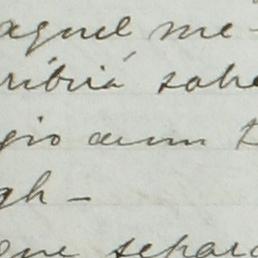 aquel me-
ribirá sobre
gio aun
gh-
que separa